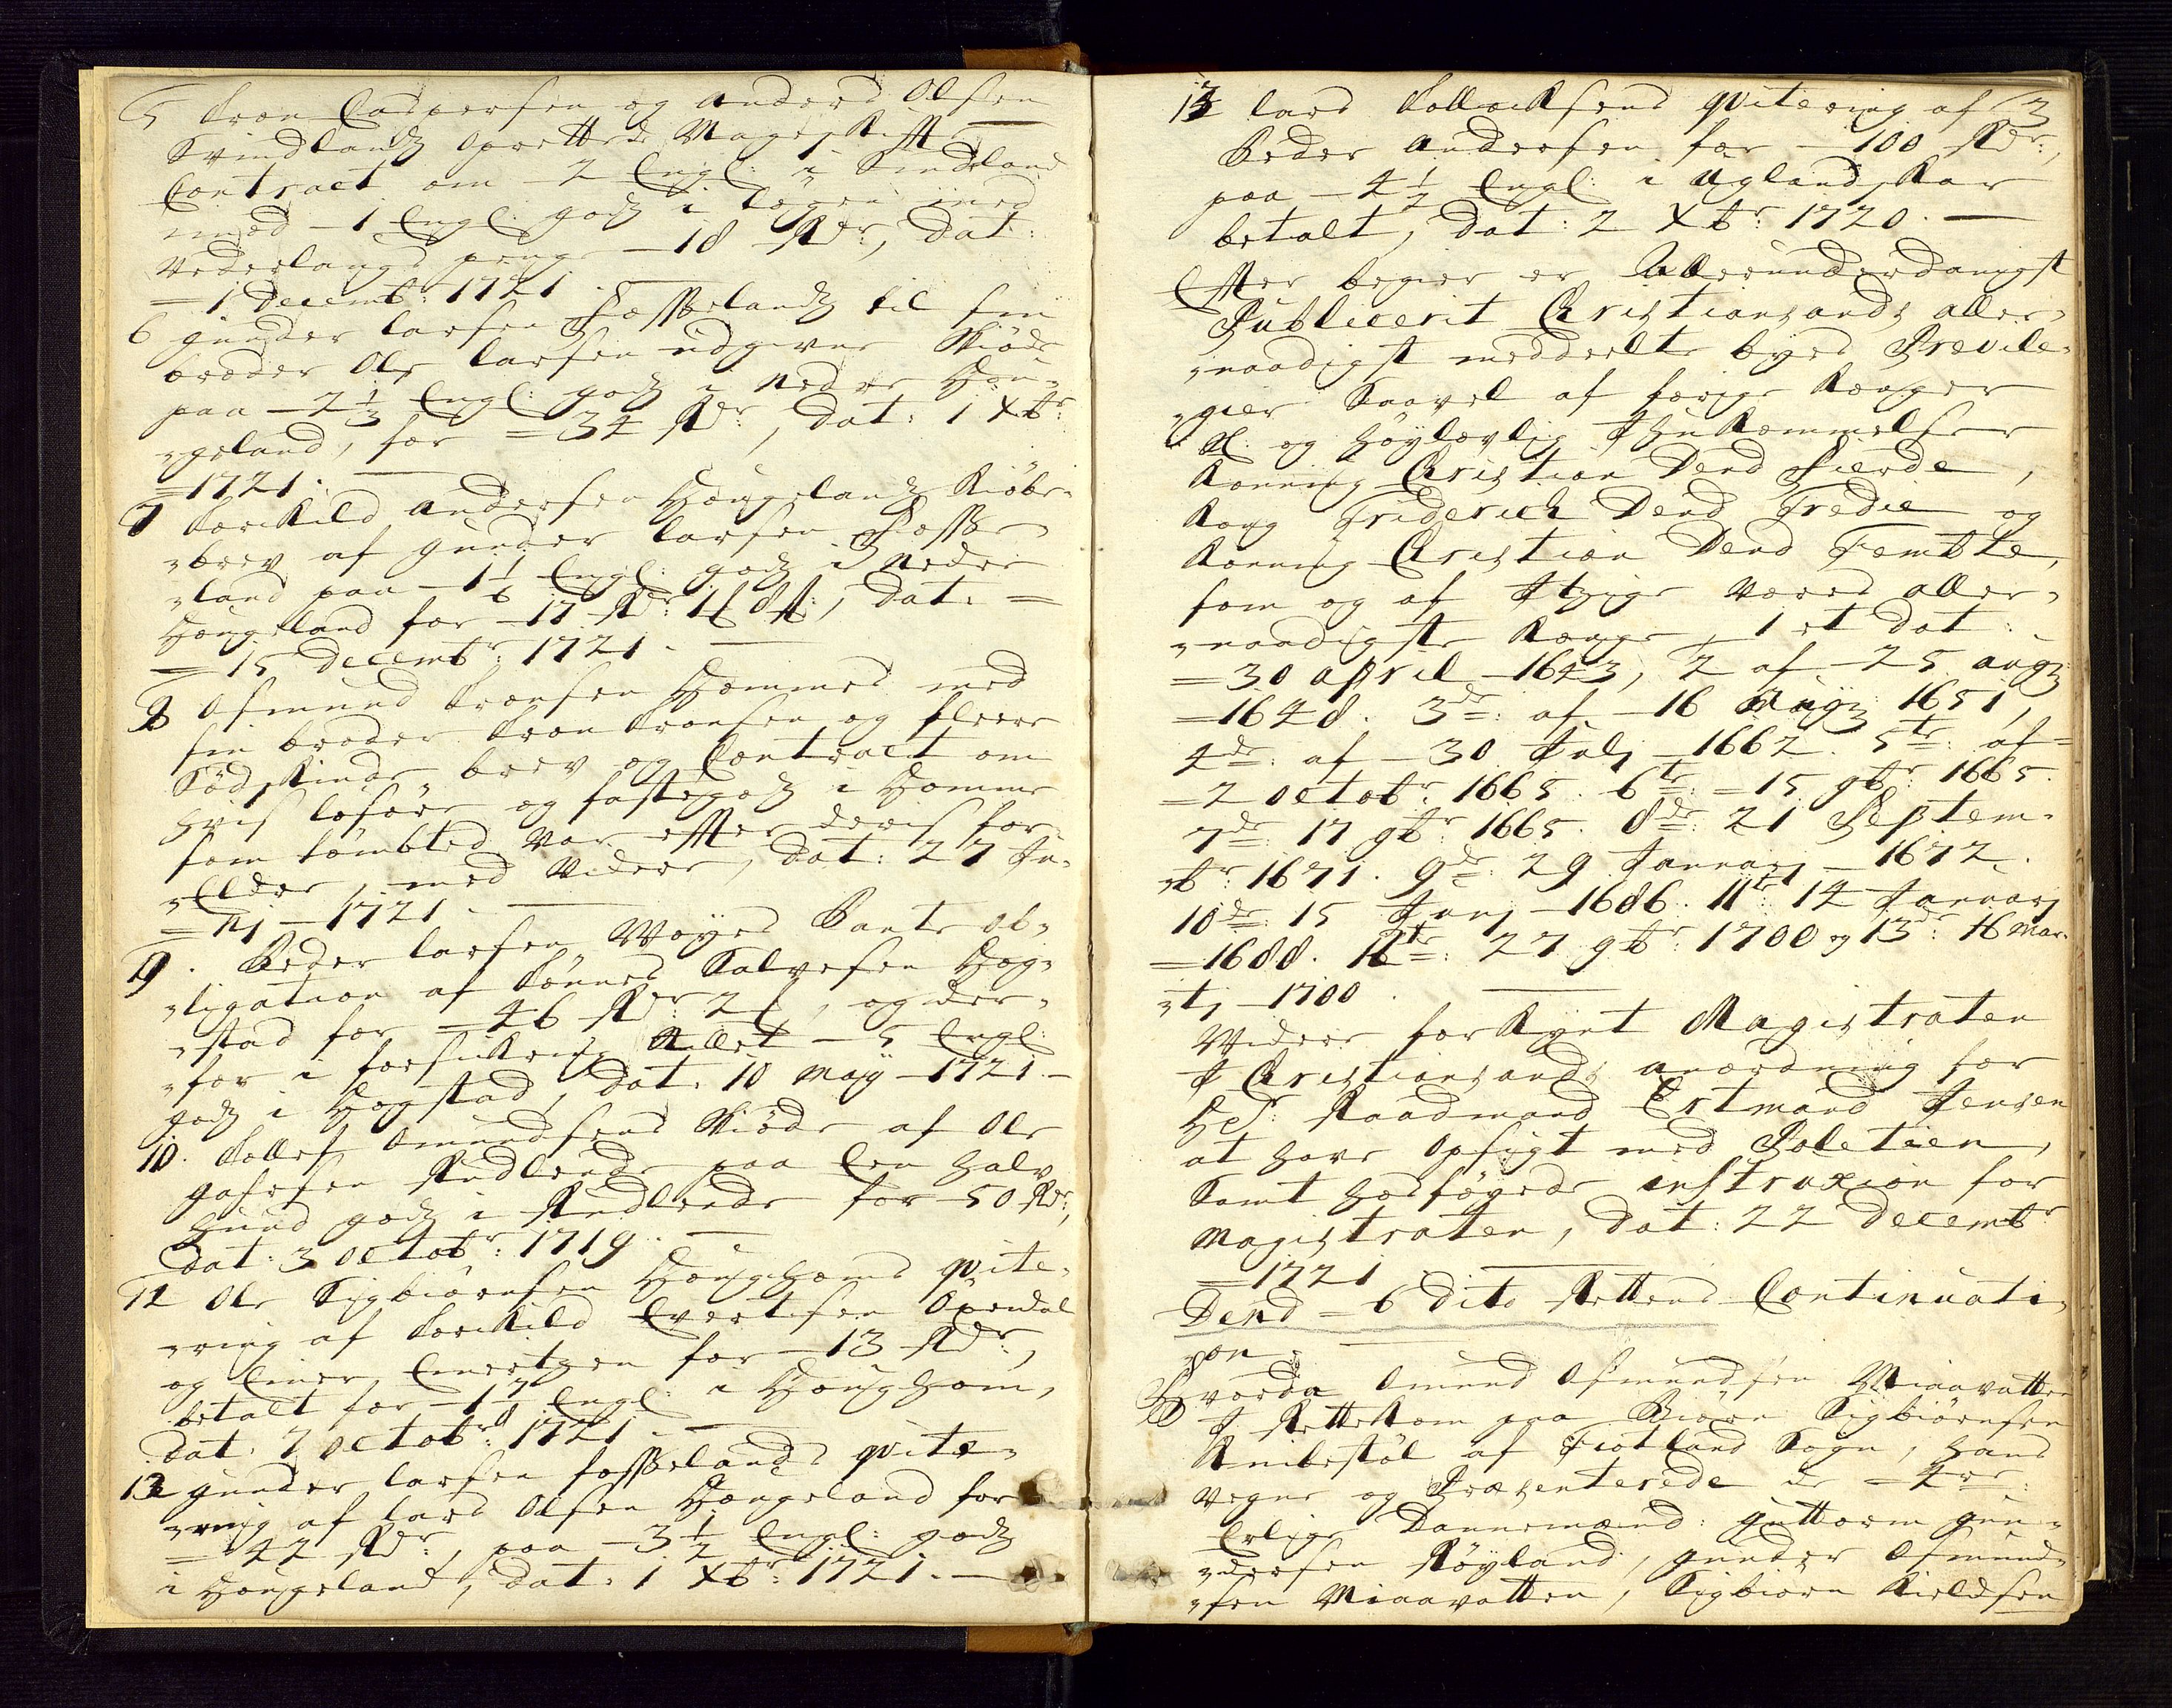 5 Tron Casspersen og Anders Olsen
Svindlands oprettede Mageskiffte
Contract om - 2 Engl: i Sindland
imod - 1 Engl. gods i med
Vederlangs penge - 18 Rdr:, dat:
= 1 decembr: 1721. —
6 gunder larsen Fosselands til sin
broder Ole larsen udgivne Skiöde
paa - 2 1/3 Engl: gods i Nedre Hou-
"geland, for = 34 Rdr:, dat: 1 Xbr:
= 1721. —
7 Torkild andersen Hougelands Kiöbe-
"brev af gunder larsen Fosse-
"land paa - 1 1/6 Engl: gods i Nedre
Hougeland for - 17 Rdr: 1 , dat: =
= 15 decembr: 1721. —
8 Osmund Tronsen Hommes med
sin broder Tron Tronsen og fleere
Södskinde brev og Contract om
hvis losöre og faste gods i Homme
som tombted var effter deris for-
"Eldre, med videre, dat: 27 Iu-
= nj - 1721. —
9. Peder larsen Möyes Pante ob-
"ligation af Tönnes Salvesen Hog-
"stad for - 46 Rdr: 2 , og der-
"for i forsikring - 5 Engl:
gods i Hogstad, dat: 10 may - 1721. -
10. Tollef Omundsens Skiöde af Ole
 Rudlende paa Een halv
hund gods i Rudlende for - 50 Rdr:,
dat: 3 octobr: 1719. —
11 Ole Sigbiörnsen Houghoms qvite-
"ring af Torkild Evertsen Öxendal
og Einer Einertsen for - 13 Rdr:,
betalt for - 1 7/8 Engl: i Houghom,
dat: 7 octobr: 1721. —
12 gunder larsen fosselands qvite-
"ring af lars Olsen Hougeland for
= 42 Rdr:, paa - 3 1/2 Engl: gods
i Hougeland, dat: 1 Xbr: 1721. —
13 lars Tollacksens qvitering af 3
Peder Andersen for - 100 Rdr:,
paa - 4 1/2 Engl: i Ugland Kar
betalt, dat: 2 Xbr: 1720. —
Effter begier er Allerunderdanigst
Publicerit Christiansands aller-
"naadigst meddeelte byes Previle-
"gier saavel af forige Konger
 og höylovlig Ihukommelse
Konning Christian Dend Fierde,
Kong Friderich Dend Tredie og
Konning Christian Dend Femtte,
som og af Itzige Vores aller-
"naadigste Konge, 1 et dat:
= 30 april - 1643, 2 af - 25 augs
= 1648. 3de: af - 16 Augs: 1651,
4de: af - 30 Iulj - 1662. 5te: af =
= 2 octobr: 1665. 6te: = 15 9br: 1665.
7de: 17 9br: 1665. 8de: 21 Septem-
"br: 1671. 9de: 29 Ianuarj - 1672.
10de: 15 Iunj - 1686. 11te: 14 Ianuarj
= 1688. 12te: 27 9br: 1700 og 13de: 16 Mar-
"tj - 1700. —
Videre forkynt Magistraten
I Christiansands anordning for
Hr: Raadmand Ertmand Iensen
at have opsigt med Poletien,
samt hosföyede instruxion for
Magistraten, dat: 22 decembr
= 1721. —
Dend = 6 dito Rettens Continuati-
"on. —
Hvorda Omund Osmundsen Miaavatten
I Rette kom paa Biörn Sigbiörnsen
Knibestöl af Fiotland Sogn, hans
vegne og Præsenterede de - 4re:
Erlige Dannemænd: guttorm gun-
"dersen Röyland, gunder Osmund-
"sen Miaavatten, Sigbiörn Kieldsen